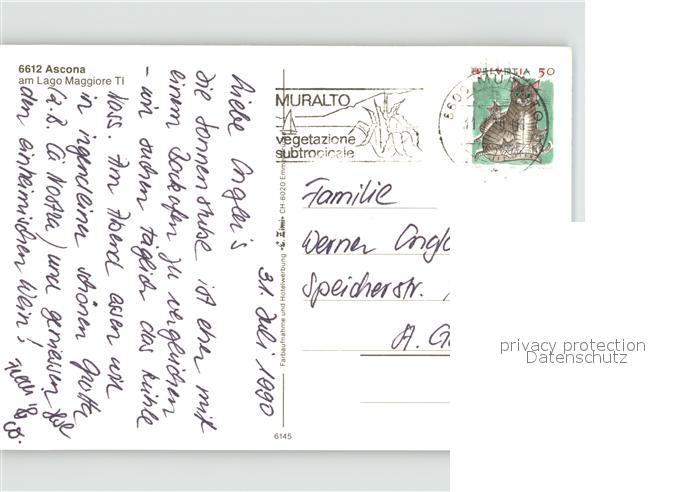 6612 Ascona
am Lago Maggiore TI
31. Juli 1990
Liebe Angler's
die Sonnenstube ist eher mit
einem Backofen zu vergleichen
- wir suchen täglich das kühle
Nass. Am Abend essen wir
in irgendeiner schönen Grotte
(z.B. Cà Nostra) und geniessen
den einheimischen Wein!
MURALTO
vegetazione
subtropicale
6602 MURALTO
HELVETIA 50
Familie
Werner Angl
Speicherstr.
A. G
Farbaufnahme und Hotelwerbung CH-6020 Emm
6145
privacy protection
Datenschutz